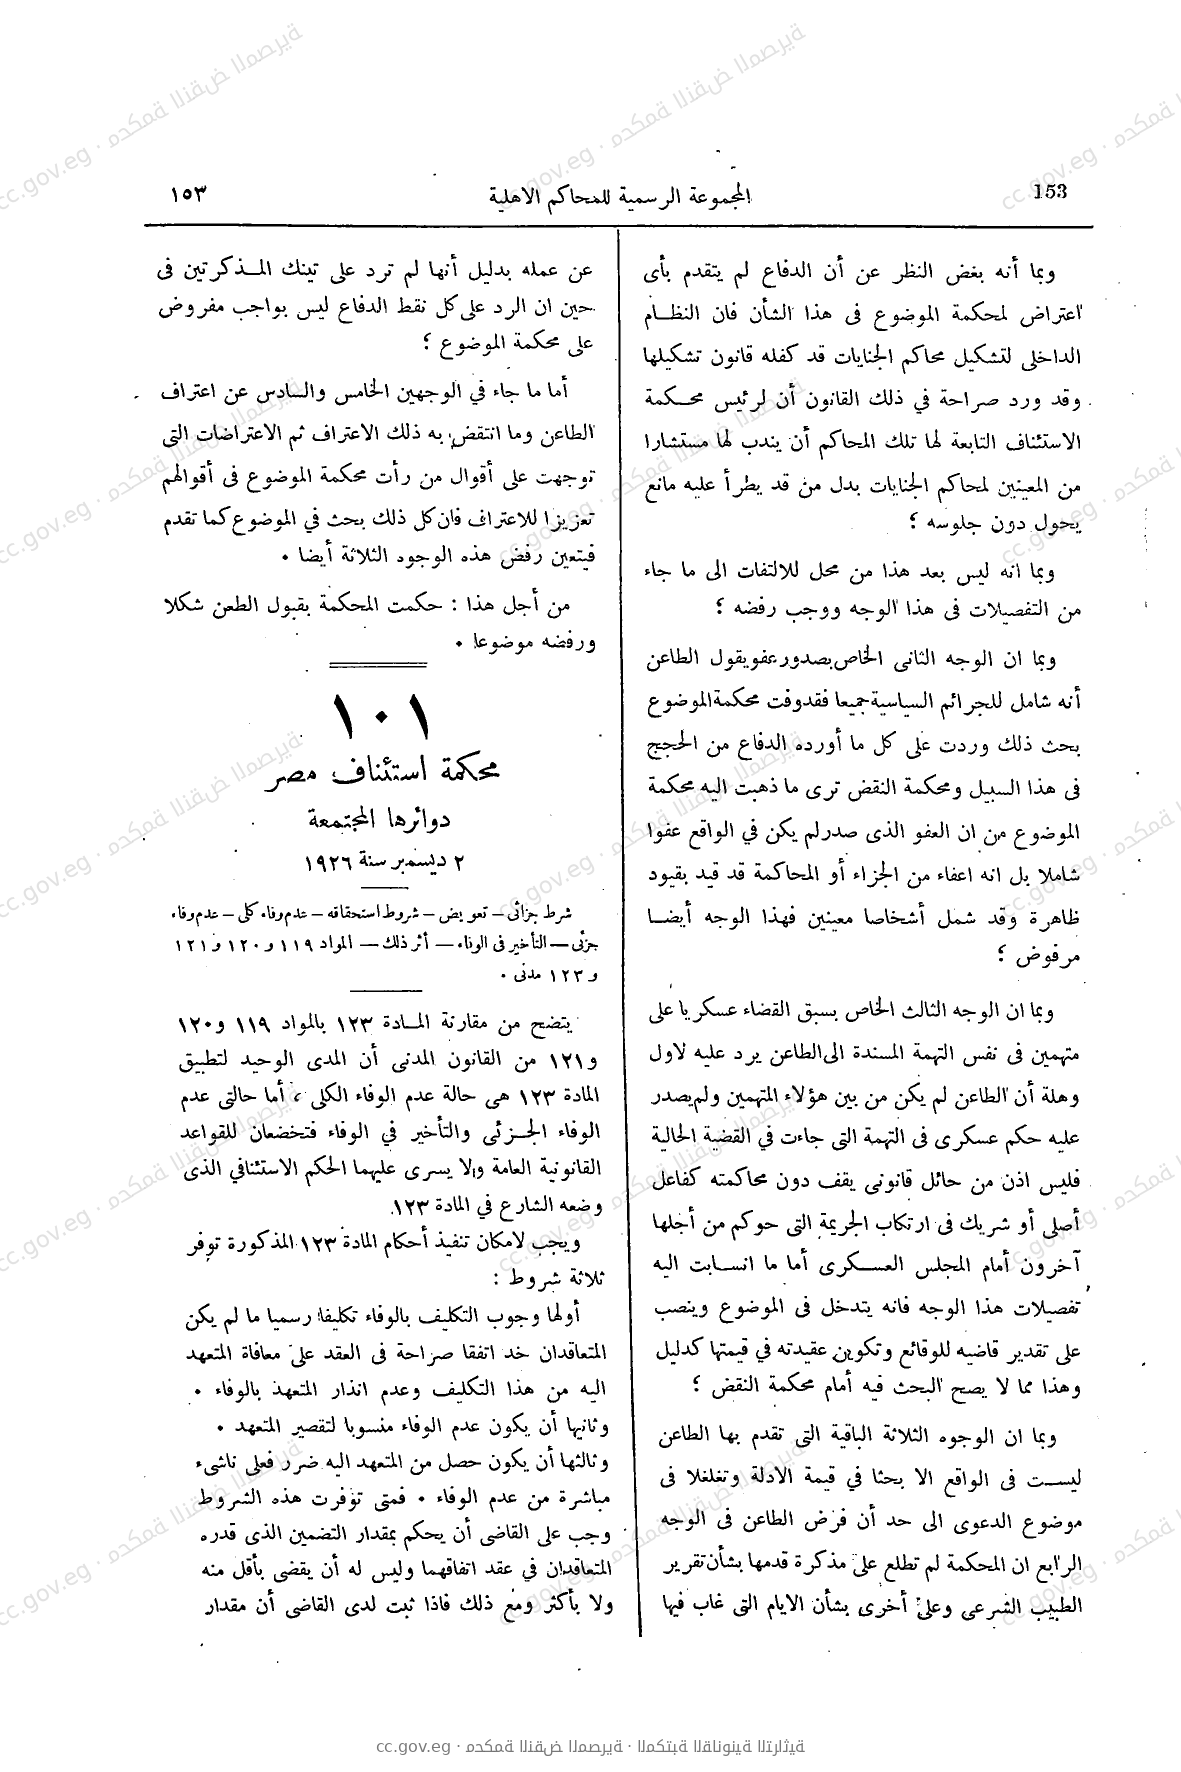 153
المجموعة الرسمية للمحاكم الاهلية
١٥٣
وبما أنه بغض النظر عن أن الدفاع لم يتقدم بأى
اعتراض لمحكمة الموضوع فى هذا الشأن فان النظام
الداخلى لتشكيل محاكم الجنايات قد كفله قانون تشكيلها
وقد ورد صراحة في ذلك القانون أن لرئيس محكمة
الاستئناف التابعة لها تلك المحاكم أن يندب لها مستشارا
من المعينين لمحاكم الجنايات بدل من قد يطرأ عليه مانع
يحول دون جلوسه ؛
وبما انه ليس بعد هذا من محل للالتفات الى ما جاء
من التفصيلات فى هذا الوجه ووجب رفضه ؛
وبما ان الوجه الثانى الخاص بصدور عفو يقول الطاعن
أنه شامل للجرائم السياسية جميعا فقد وفت محكمة الموضوع
بحث ذلك وردت على كل ما أورده الدفاع من الحجج
فى هذا السبيل ومحكمة النقض ترى ما ذهبت اليه محكمة
الموضوع من ان العفو الذى صدر لم يكن في الواقع عفوا
شاملا بل انه اعفاء من الجزاء أو المحاكمة قد قيد بقيود
ظاهرة وقد شمل أشخاصا معينين فهذا الوجه أيضا
مرفوض ؛
وبما ان الوجه الثالث الخاص بسبق القضاء عسكريا على
متهمين فى نفس التهمة المسندة الى الطاعن يرد عليه لاول
وهلة أن الطاعن لم يكن من بين هؤلاء المتهمين ولم يصدر
عليه حكم عسكرى فى التهمة التى جاءت في القضية الحالية
فليس اذن من حائل قانونى يقف دون محاكمته كفاعل
أصلى أو شريك فى ارتكاب الجريمة التى حوكم من أجلها
آخرون أمام المجلس العسكرى أما ما انسابت اليه
تفصيلات هذا الوجه فانه يتدخل فى الموضوع وينصب
على تقدير قاضيه للوقائع وتكوين عقيدته في قيمتها كدليل
وهذا مما لا يصح البحث فيه أمام محكمة النقض ؛
وبما ان الوجوه الثلاثة الباقية التى تقدم بها الطاعن
ليست فى الواقع الا بحثا في قيمة الادلة وتغلغلا فى
موضوع الدعوى الى حد أن فرض الطاعن فى الوجه
الرابع ان المحكمة لم تطلع على مذكرة قدمها بشأن تقرير
الطبيب الشرعى وعلى أخرى بشأن الايام التى غاب فيها
عن عمله بدليل أنها لم ترد على تينك المذكرتين فى
حين ان الرد على كل نقط الدفاع ليس بواجب مفروض
على محكمة الموضوع ؛
أما ما جاء في الوجهين الخامس والسادس عن اعتراف
الطاعن وما انتقض به ذلك الاعتراف ثم الاعتراضات التى
توجهت على أقوال من رأت محكمة الموضوع فى أقوالهم
تعزيزا للاعتراف فان كل ذلك بحث في الموضوع كما تقدم
فيتعين رفض هذه الوجوه الثلاثة أيضا .
من أجل هذا : حكمت المحكمة بقبول الطعن شكلا
ورفضه موضوعا .
١٠١
محكمة استئناف مصر
دوائرها المجتمعة
٢ ديسمبر سنة ١٩٢٦
شرط جزائى – تعويض – شروط استحقاقه – عدم وفاء كلى – عدم وفاء
جزئى – التأخير فى الوفاء – أثر ذلك – المواد ١١٩ و ١٢٠ و ١٢١
و ١٢٣ مدنى .
يتضح من مقارنة المادة ١٢٣ بالمواد ١١٩ و١٢٠
و١٢١ من القانون المدنى أن المدى الوحيد لتطبيق
المادة ١٢٣ هى حالة عدم الوفاء الكلى ، أما حالتى عدم
الوفاء الجزئى والتأخير في الوفاء فتخضعان للقواعد
القانونية العامة ولا يسرى عليهما الحكم الاستثنافي الذى
وضعه الشارع في المادة ١٢٣.
ويجب لامكان تنفيذ أحكام المادة ١٢٣ المذكورة توفر
ثلاثة شروط :
أولها وجوب التكليف بالوفاء تكليفا رسميا ما لم يكن
المتعاقدان خد اتفقا صراحة فى العقد على معافاة المتعهد
اليه من هذا التكليف وعدم انذار المتعهد بالوفاء .
وثانيها أن يكون عدم الوفاء منسوبا لتقصير المتعهد .
وثالثها أن يكون حصل من المتعهد اليه ضرر فعلى ناشىء
مباشرة من عدم الوفاء . فمتى توفرت هذه الشروط
وجب على القاضى أن يحكم بمقدار التضمين الذى قدره
المتعاقدان في عقد اتفاقهما وليس له أن يقضى بأقل منه
ولا بأكثر ومع ذلك فاذا ثبت لدى القاضى أن مقدار
cc.gov.eg · محكمة النقض المصرية · المكتبة القانونية التراثية